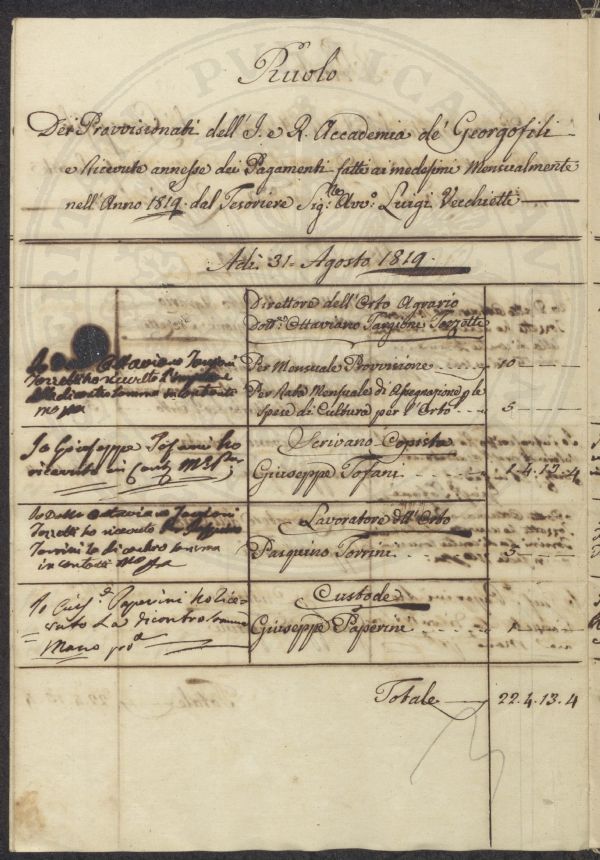 Ruolo
Dei Provvisionati dell'I. e R. Accademia de' Georgofili
e Ricevute annesse dei Pagamenti fatti ai medesimi Mensualmente
nell'Anno 1819. dal Tesoriere Sig:re Avv:o Luigi Vecchietti
Adì 31. Agosto 1819.
Direttore dell'Orto Agrario
Dott:re Ottaviano Targioni Tozzetti
Io Dott. Ottaviano Targioni
Tozzetti ho ricevuto
la di contro somma in contante
mo pa
Per Mensuale Provvisione 10
Per Rata Mensuale di Assegnazione p le
Spese di Cultura per l'Orto 5
Io Giuseppe Tofani ho
ricevuto in
Scrivano Copista
Giuseppe Tofani 4.13.4
Io Dott. Ottaviano Targioni
Tozzetti ho ricevuto
Torrini la di contro somma
in contanti
Lavoratore dell'Orto
Pasquino Torrini 5
Io Paperini ho rice-
vuto La dicontro somma
Mano pa
Custode
Giuseppe Paperini
Totale 22.4.13.4